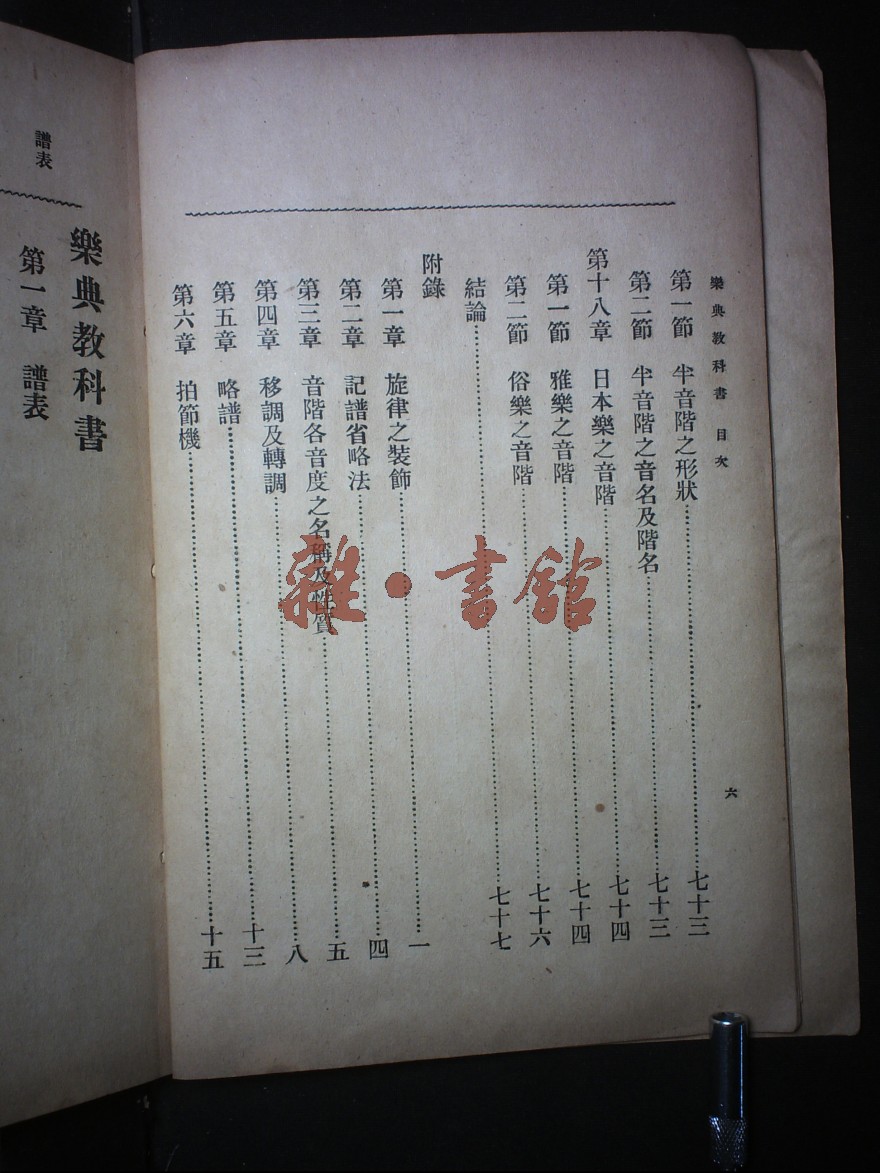 樂典教科書 目次 六
第一節 半音階之形狀……七十三
第二節 半音階之音名及階名……七十三
第十八章 日本樂之音階……七十四
第一節 雅樂之音階……七十四
第二節 俗樂之音階……七十六
結論……七十七
附錄
第一章 旋律之装飾……一
第二章 記譜省略法……四
第三章 音階各音度之名稱及性質……五
第四章 移調及轉調……八
第五章 略譜……十三
第六章 拍節機……十五
樂典教科書
譜表
第一章 譜表
雜·書館